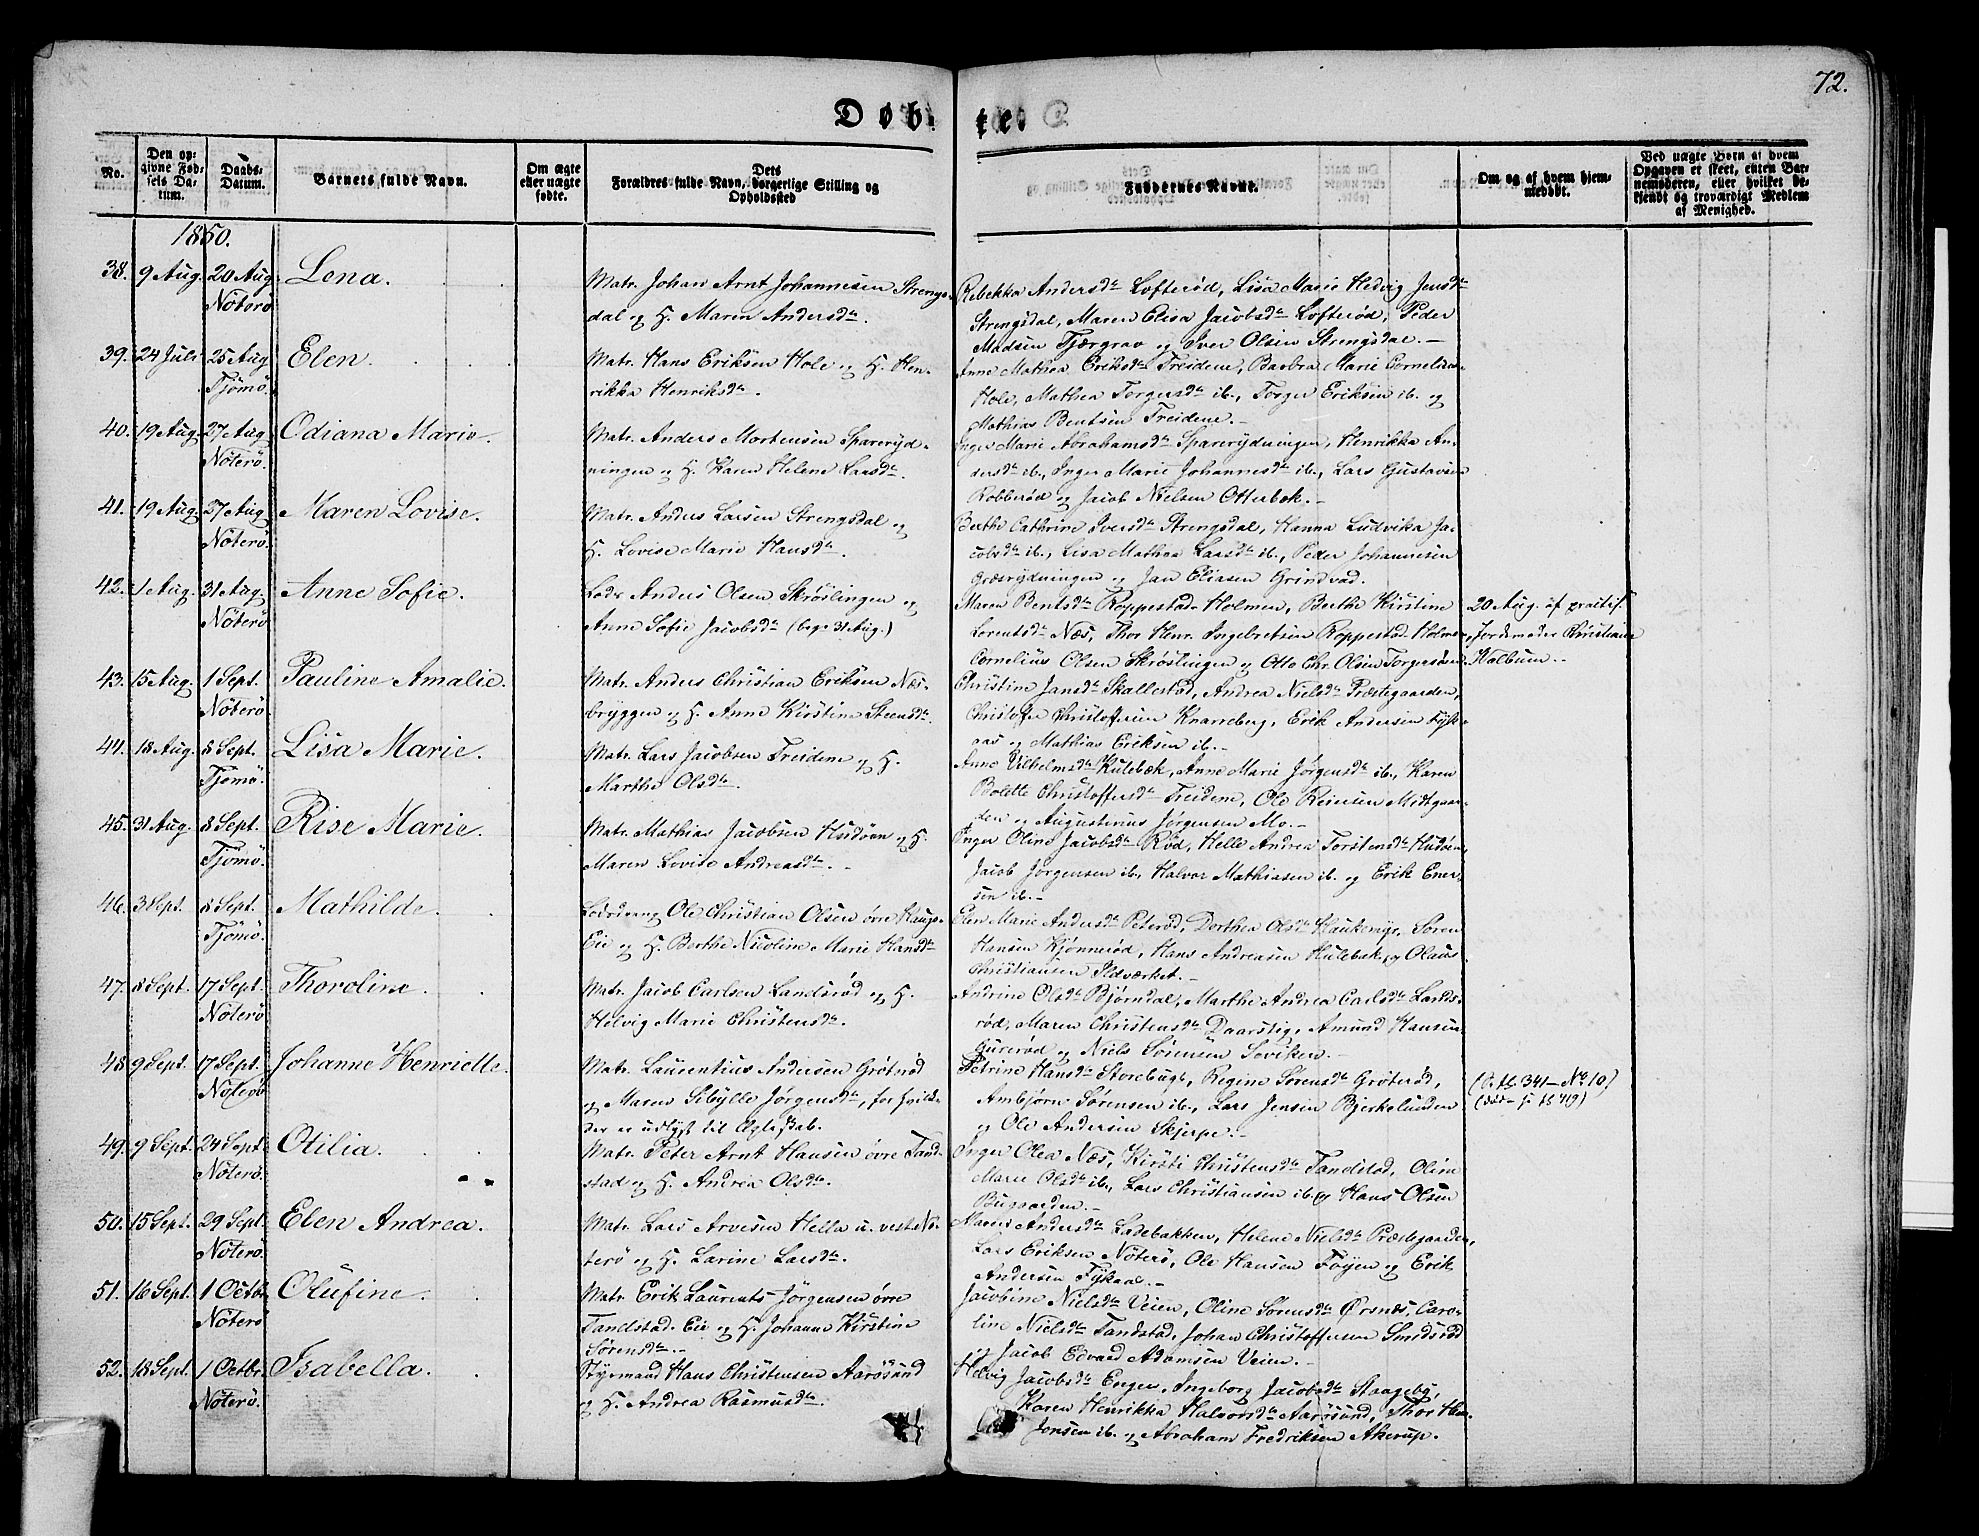 72.
Døbte.
No.
Den opgivne Fødsels Datum.
Daabs-Datum.
Barnets fulde Navn.
Om ægte eller uægte fødte.
Dets Forældres fulde Navn, borgerlige Stilling og Opholdssted
Faddernes Navne.
Om og af hvem hjemmedøbt.
Ved uægte Børn af hvem Opgaven er skeet, enten Barnemoderen, eller hvilket bekjendt og troværdigt Medlem af Menighed.
1850.
38. 9 Aug. 20 Aug Nöterö Lena.
Matr. Johan Arnt Johannesen Strengs-
dal og H. Maren Andersdtr.
Rebekka Andersdtr Lofterød, Lisa Marie Hedvig Jensdtr
Strengsdal, Maren Elisa Jacobsdtr Lofterød, Peder
Madsen Tjærgrav og Iver Olsen Strengsdal.-
39. 24 Juli 25 Aug Tjömö. Elen.
Matr. Hans Eriksen Hole og H. Hen-
rikka Henriksdtr.
Anne Mathea Eriksdtr Treidene, Barbra Marie Cornelius-
Hole, Mathea Torgersdtr ib., Torger Eriksen ib. og
Mathias Bentsen Treidene.-
40. 19 Aug. 27 Aug Nöterö. Odiana Marie.
Matr. Anders Mortensen Spareryd-
ningen og H. Karen Helene Larsdtr.
Inger Marie Abrahamsdtr Sparerydningen, Henrikka An-
dersdtr ib., Inger Marie Johannesdtr ib., Lars Gustavsen
Robberød og Jacob Nielsen Otterbek.-
41. 19 Aug. 27 Aug Nöterö. Maren Lovise.
Matr. Anders Larsen Strengsdal og
H. Lovise Marie Hansdtr.
Berthe Cathrine Iversdtr Strengsdal, Hanna Ludvika Ja-
cobsdtr ib., Lisa Mathea Larsdtr ib., Peder Johannesen
Græsrydningen og Jan Eliasen Grindvad.
42. 1 Aug. 31 Aug. Nöterö Anne Sofie.
Lods Anders Olsen Skröslingen og
Anne Sofie Jacobsdtr (begr. 31 Aug.)
Maren Bentsdtr Roppestad-Holmen, Berthe Kirstine
Lorentsdtr Næs, Thor Henr. Ingebretsen Roppestad-Holmen,
Cornelius Olsen Skröslingen og Otto Chr. Olsen Torgersøen.
20 Aug. af practis.
Jordemoder Christiane
Halbum.-
43. 15 Aug. 1 Sept. Nöterö Pauline Amalie.
Matr. Anders Christian Eriksen Næs-
bryggen og H. Anne Kirstine Steensdtr.
Christine Jansdtr Skallestad, Andrea Nielsdtr Præstegaarden,
Christofer Christoffersen Knarreberg, Erik Andersen Fyst-
aas og Mathias Eriksen ib.-
44. 18 Aug. 8 Sept. Tjömö. Lisa Marie.
Matr. Lars Jacobsen Treidene og H.
Marthe Olsdtr.
Anne Vilhelmsdtr Hulebæk, Anne Marie Jørgensdtr ib., Karen
Bolette Christoffersdtr Treidene, Ole Reiersen Midtgaar-
den og Augustinus Jørgensen Mo.-
45. 31 Aug. 8 Sept. Tjömö. Rise Marie.
Matr. Mathias Jacobsen Hudøen og H.
Maren Lovise Andreasdtr.-
Inger Oline Jacobsdtr Rød, Helle Andrea Torstensdtr Hudøen,
Jacob Jørgensen ib., Halvor Mathiasen ib. og Erik Ener-
sen ib.-
46. 3 Sept. 8 Sept. Tjömö. Mathilde.
Lodsdreng Ole Christian Olsen øvre Haugs-
Eie og H. Berthe Nicoline Marie Hansdtr
Elen Marie Andersdtr Peterød, Dorthea Olsdtr Haukemyr, Søren
Hansen Kjønnerød, Hans Andreasen Hulebak, og Olaus
Christiansen Ildværket.-
47. 8 Sept. 17 Sept. Nöterö Thoroline.
Matr. Jacob Carlsen Landsrød og H.
Helvig Marie Christensdtr.
Andrine Olsdtr Bjørndal, Marthe Andrea Carlsdtr Lands-
rød, Maren Christensdtr Daarstig, Amund Hansen
Gurerød og Niels Sørensen Soviken.-
48 9 Sept. 17 Sept. Nöterö Johanne Henriette.
Matr. Laurentius Andersen Grøterød
og Maren Sibylle Jørgensdtr, for hvilke
der er udlyst til Ægteskab.
Petrine Hansdtr Storebugt, Regine Sørensdtr Grøterød,
Ambjørn Sørensen ib., Lars Jensen Bjerkelunden
og Ole Andersen Skjerpe.-
49. 9 Sept. 24 Sept. Nöterö. Otilia.
Matr. Peter Arnt Hansen øvre Tand-
stad og H. Andrea Olsdtr.
Inger Olea Næs, Kirsti Christensdtr Tandstad, Oline
Marie Olsdtr ib., Lars Christiansen ib. og Hans Olsen
Bugaarden.-
50. 15 Sept. 29 Sept. Nöterö. Elen Andrea.
Matr. Lars Arvesen Hella u. vestre Nö-
terö og H. Larine Larsdtr.
Maren Andersdtr Ladebakken, Helene Nielsdtr Præstegaarden,
Lars Eriksen Nöterö, Ole Hansen Føyen og Erik
Andersen
51. 16 Sept. 1 Octbr Nöterö Olufine.
Matr. Erik Laurents Jørgensen øvre
Tandstad-Eie og H. Johanne Kirstine
Sørensdtr.-
Jacobine Nielsdtr Veien, Oline Sørensdtr Ørsnæs, Caro-
line Nielsdtr Tandstad, Johan Christoffersen Smidsrød
og Jacob Edvard Adamsen Veien.-
52. 18 Sept. 1 Octbr. Nöterö. Isabella.
Styrmand Hans Christensen Aarøsund
og H. Andrea Rasmusdtr.
Helvig Jacobsdtr Engen, Ingeborg Jacobsdtr Skageby,
Karen Henrikka Halvorsdtr Aarøsund, Thor Hen.
Jonsen ib. og Abraham Fredriksen Akerup.